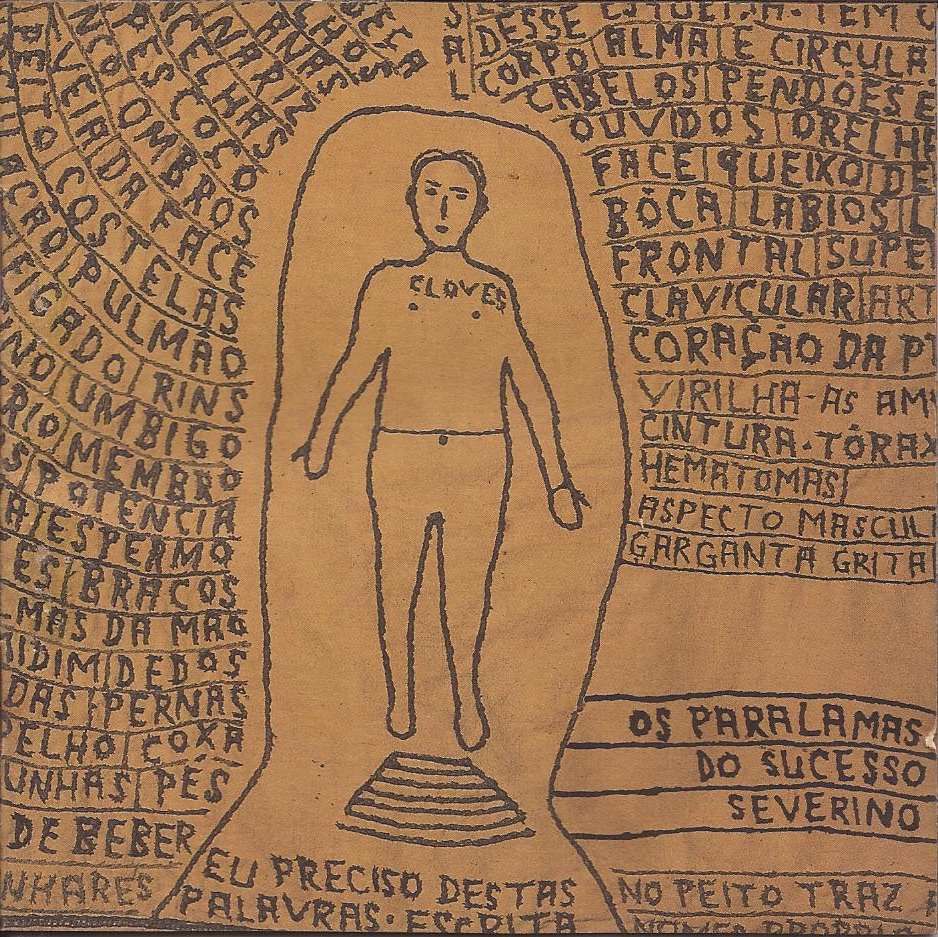 BEÇA
LHOS
RNAS
NARIZ
NCELHAS
PESCOÇO
OMBROS
VEIA DA FACE
PEITO|COSTELAS
CAO|PULMAO
FIGADO|RINS
NO|UMBIGO
RIO|MEMBRO
S|POTENCIA
ESPERMO
ES|BRACOS
MAS DA MAO
DEDOS
DAS|PERNAS
ELHO|COXA
UNHAS|PÉS
DE BEBER
NHARES
SAL
CLOVES
EU PRECISO DESTAS
PALAVRAS. ESCRITA
DESSE TEM C
CORPO|ALMA|E CIRCULA
CABELOS|PENDÕES E
OUVIDOS|ORELH
FACE|QUEIXO|DE
BÔCA|LABIOS|L
FRONTAL|SUPE
CLAVICULAR|ART
CORAÇÃO DA P
VIRILHA-AS AM
CINTURA-TÓRAX
HEMATOMAS|
ASPECTO MASCULI
GARGANTA GRITA
OS PARALAMAS
DO SUCESSO
SEVERINO
NO PEITO TRAZ